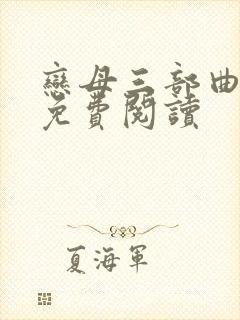 戀母三部曲
免費閱讀
夏海軍